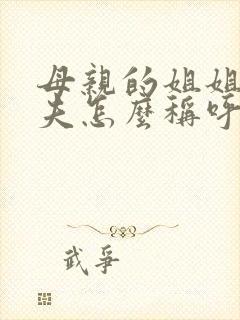 母親的姐姐
夫怎麼稱呼
武爭